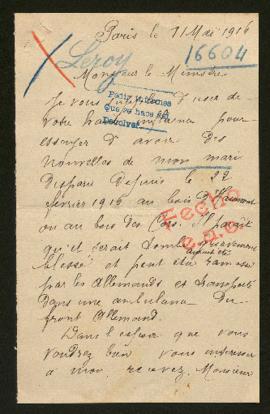 Paris le 11 Mai 1916
Leroy
16604
Monsieur le Ministre
Je vous d'user de
votre haute pour
essayer d'avoir des
nouvelles de mon mari
disparu depuis le 22
février 1916 au bois d'
ou au bois des il paraît
qu'il serait tombé
blessé et peut être ramassé
par les Allemands et transporté
dans une ambulance du
front Allemand.
Dans l'espoir que vous
voudrez bien vous intéresser
à mon recevez Monsieur
que se hace
Devolver
Fecho